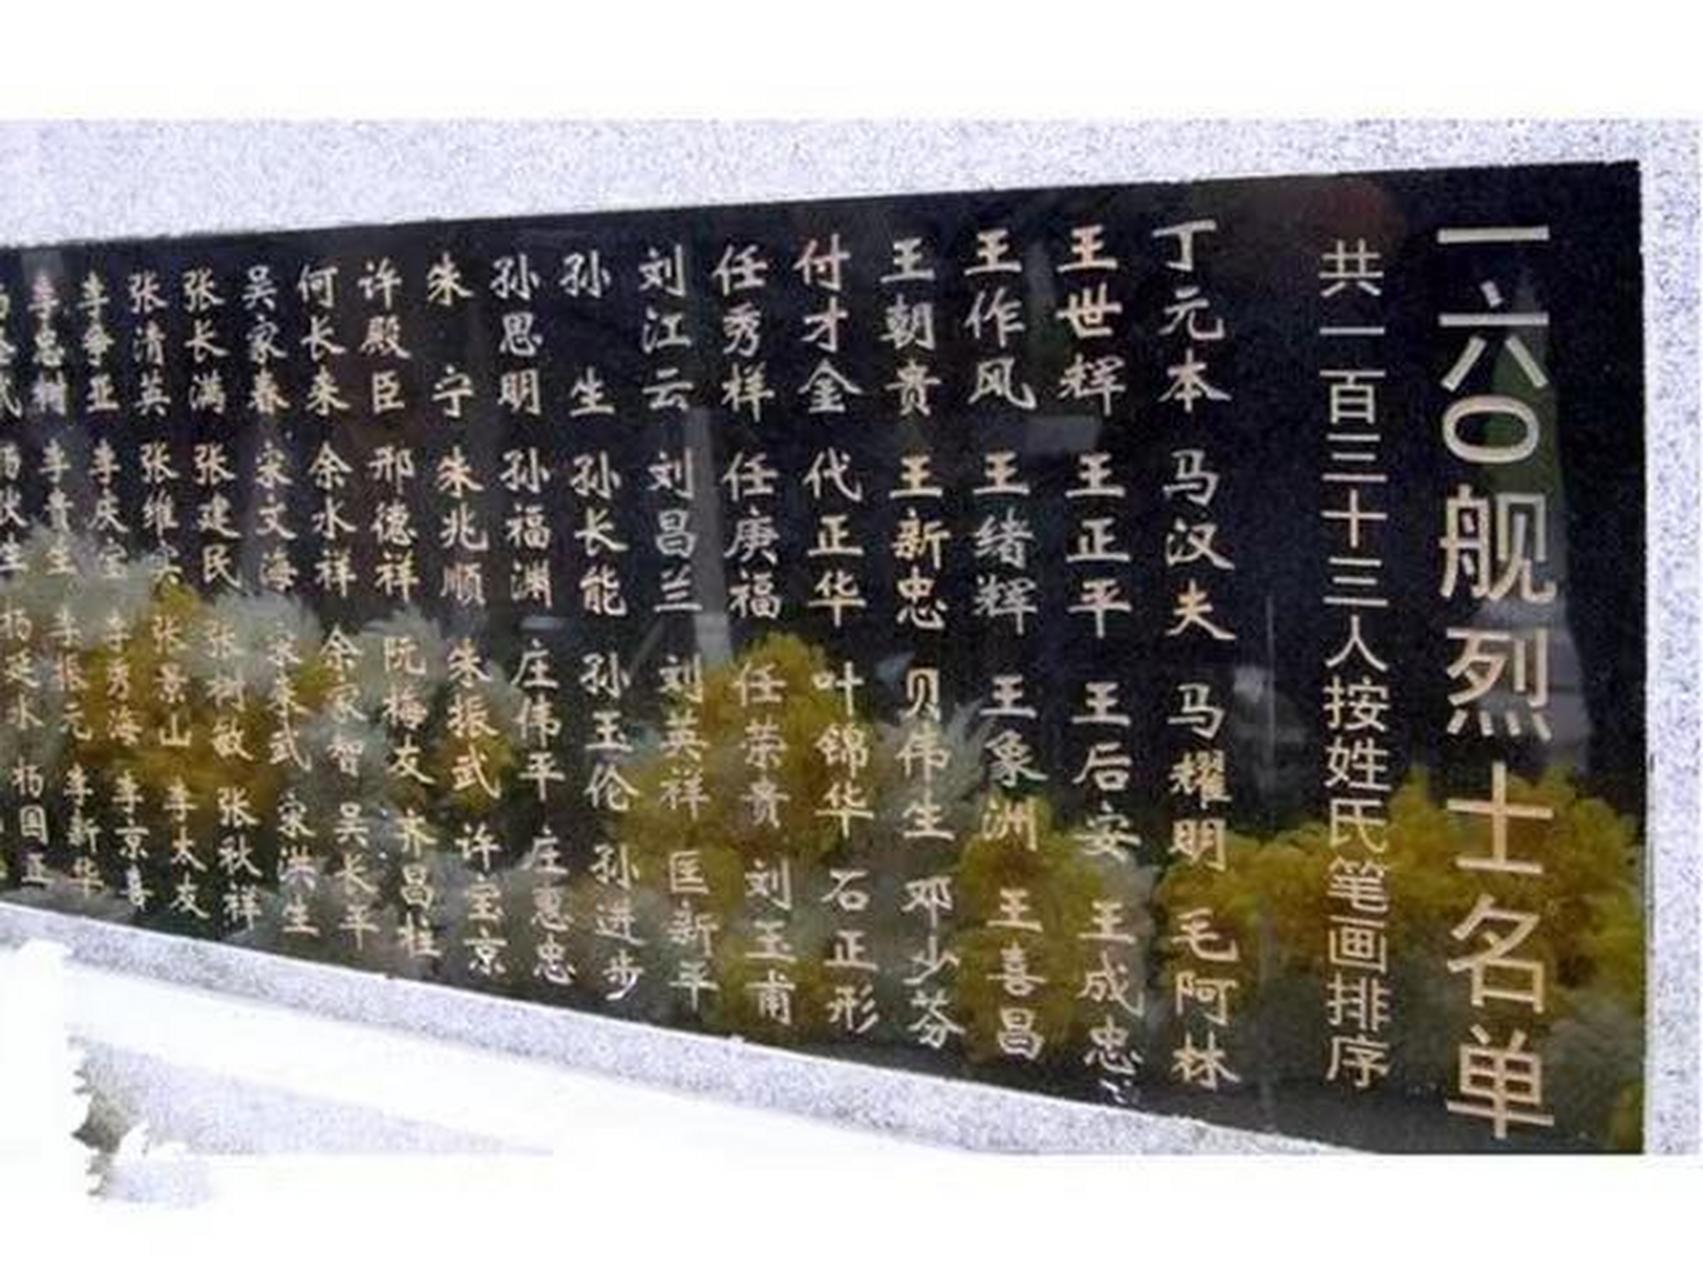 一六〇舰烈士名单
共一百三十三人按姓氏笔画排序
丁元本 马汉夫 马耀明 毛阿林
王世辉 王正平 王后安 王成忠
王作风 王绪辉 王象洲 王喜昌
王朝贵 王新忠 贝伟生 邓少芬
付才金 代正华 叶锦华 石正形
任秀祥 任庚福 任荣贵 刘玉甫
刘江云 刘昌兰 刘英祥 匡新平
孙生 孙长能 孙玉伦 孙进步
孙思明 孙福渊 庄伟平 庄惠忠
朱宁 朱兆顺 朱振武 许宝京
许殿臣 邢德祥 阮梅友 宋昌柱
何长来 余水祥 余家智 吴长平
吴家春 宋文海 宋来武 宋洪生
张长满 张建民 张树敏 张秋祥
张清英 张维 张景山 李太友
李争亚 李庆宝 李秀海 李京喜
李忠树 李贵生 李振元 李新华
杨延水 杨国正